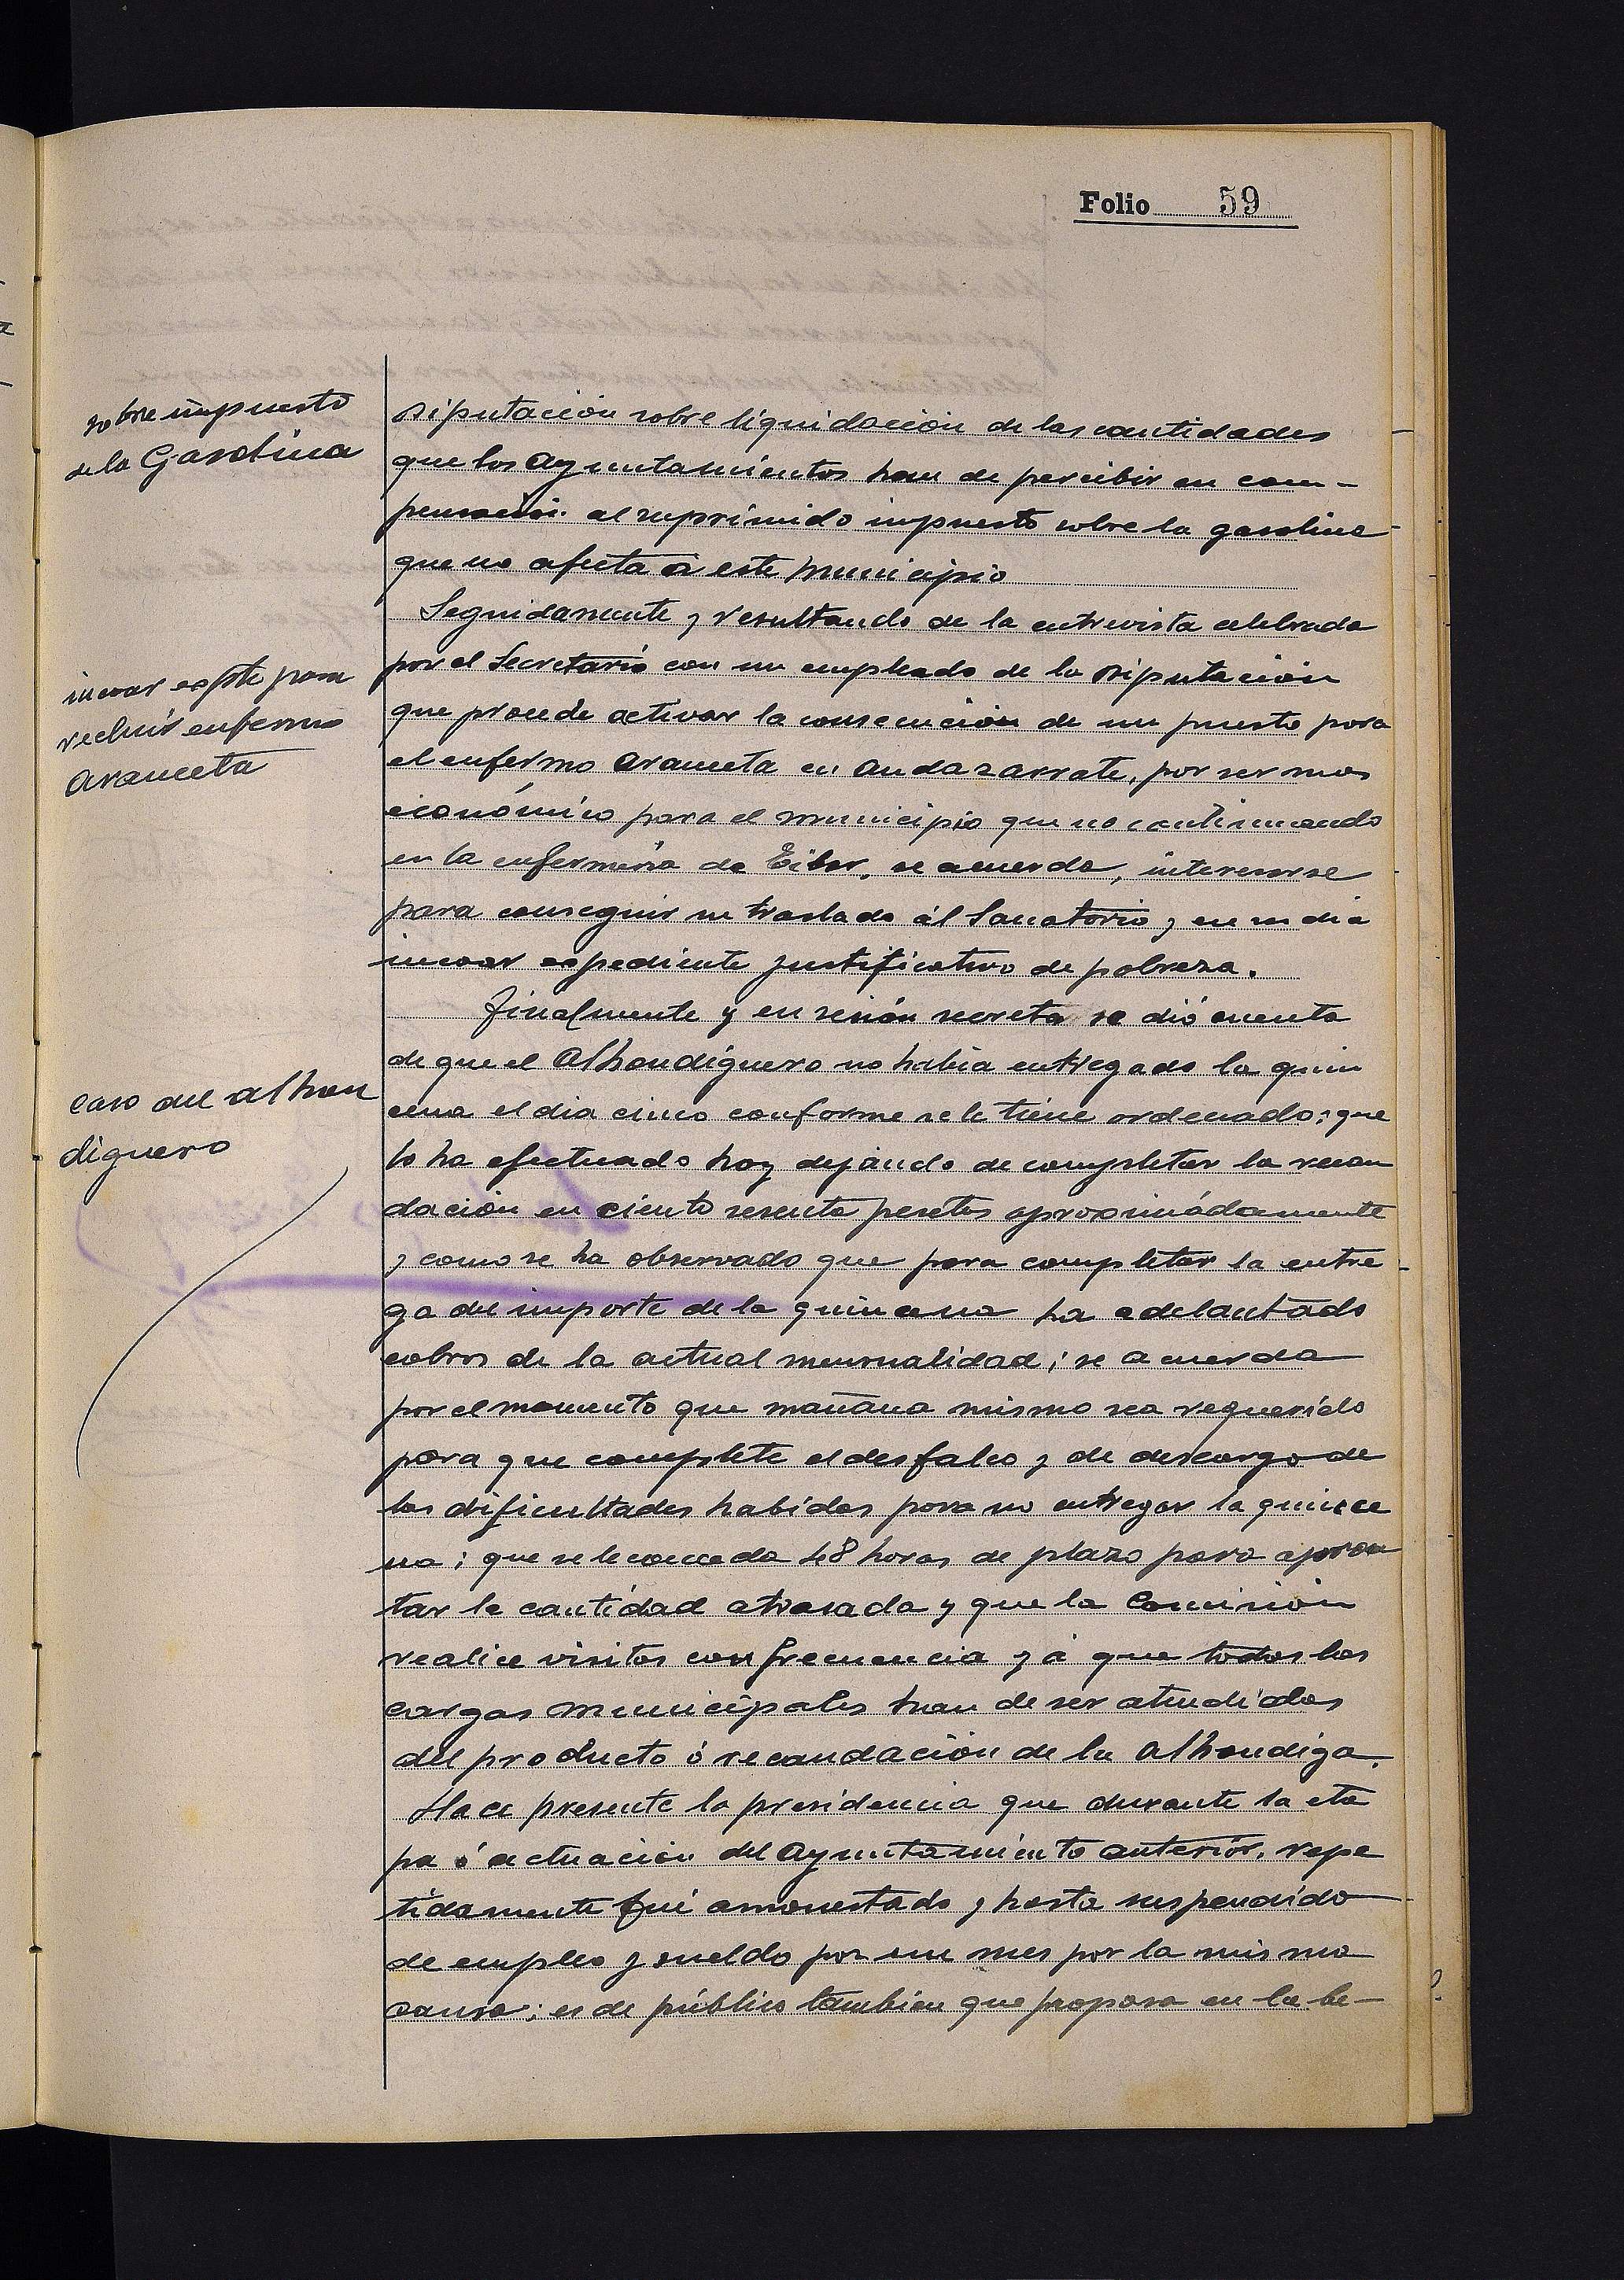 Folio 59
sobre impuesto
de la Gasolina
Diputación sobre liquidación de las cantidades
que los Ayuntamientos han de percibir en com-
pensación al suprimido impuesto sobre la gasolina
que no afecta a este municipio
incoar expte para
recluir enfermo
Aranceta
Seguidamente y resultando de la entrevista celebrada
por el Secretario con un empleado de la Diputación
que procede activar la consecución de un puesto para
el enfermo Aranceta en Andazarrate, por ser mas
económico para el municipio que no continuando
en la enfermeria de Eibar, se acuerda, interesarse
para conseguir su traslado ál Sanatorio y en su dia
incoar expediente justificativo de pobreza.
caso del alhon
diguero
Finalmente y en sesión secreta se dió cuenta
de que el Alhondiguero no habia entregado la quin
cena el dia cinco conforme se le tiene ordenado; que
lo ha efectuado hoy dejando de completar la recau
dación en ciento sesenta pesetas aproximádamente
y como se ha observado que para completar la entre
ga del importe de la quincena ha adelantado
cobros de la actual mensualidad; se acuerda
por el momento que mañana mismo sea requerido
para que complete el desfalco y de descargo de
las dificultades habidas para no entregar la quince
na; que se le conceda 48 horas de plazo para apron
tar la cantidad atrasada y que la Comisión
realice visitas con frecuencia yá que todas las
cargas municipales han de ser atendidas
del producto ó recaudación de la Alhondiga.
Hace presente la presidencia que durante la eta
pa ó actuación del Ayuntamiento anterior, repe
tidamente fué amonestado y hasta suspendido
de empleo y sueldo por un mes por la misma
causa; es de público tambien que propasa en la be-